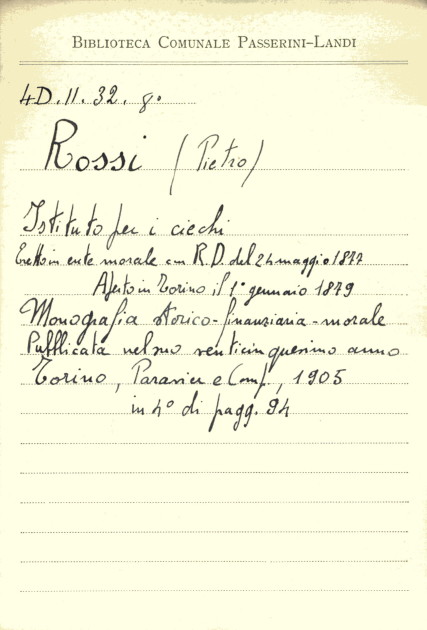 BIBLIOTECA COMUNALE PASSERINI-LANDI
4D.II.32. 8°
Rossi (Pietro)
Istituto per i ciechi
Eretto in ente morale con R.D. del 24 maggio 1877
Aperto in Torino il 1° gennaio 1879
Monografia storico-finanziaria-morale
Pubblicata nel suo venticinquesimo anno
Torino, Paravia e Comp., 1905
in 4° di pagg. 94